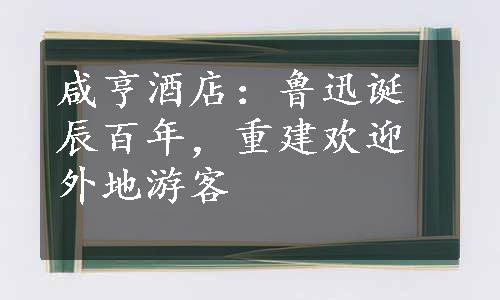 咸亨酒店：鲁迅诞
辰百年，重建欢迎
外地游客